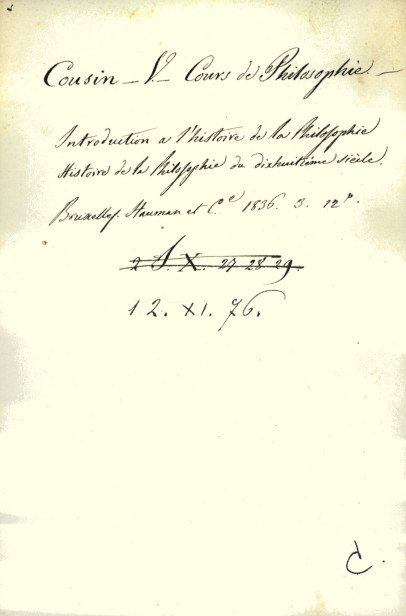 Cousin — V. — Cours de Philosophie. —
Introduction a l'histoire de la Philosophie
Histoire de la Philosophie du dixhuitième siècle.
Bruxelles. Hauman et C.e 1836. 3. 12°.
2 S. X. 27 28 29.
12. XI. 76.
C.